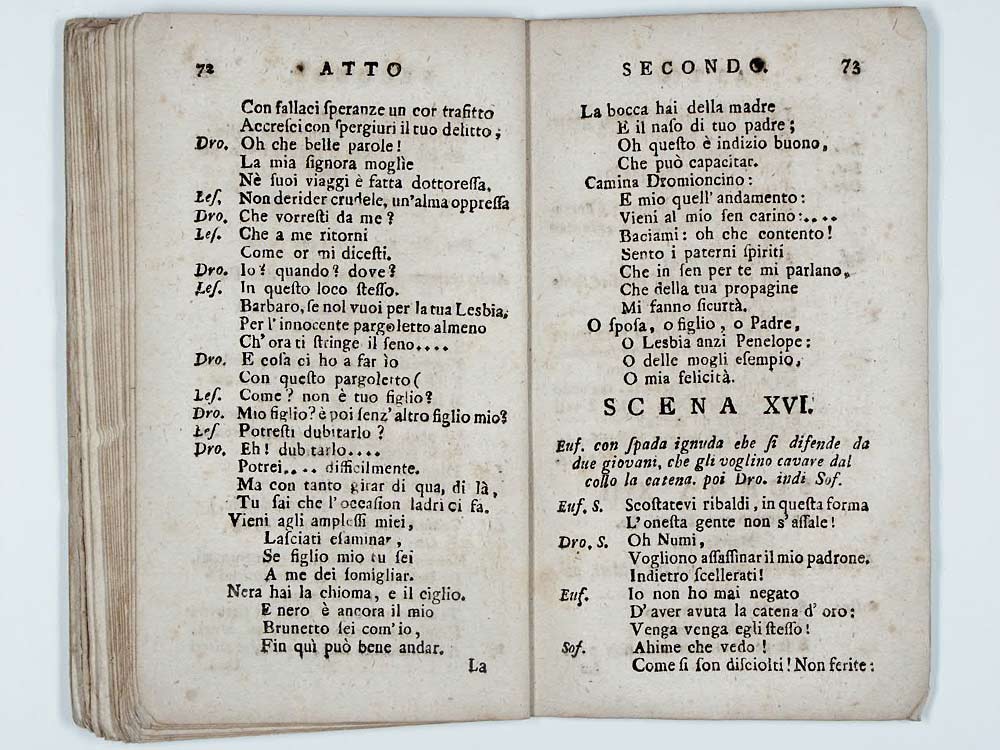 72 ATTO
Con fallaci ſperanze un cor trafitto
Accreſci con ſpergiuri il tuo delitto;
Dro. Oh che belle parole!
La mia ſignora moglie
Nè ſuoi viaggi è fatta dottoreſſa.
Leſ. Non derider crudele, un'alma oppreſſa
Dro. Che vorreſti da me?
Leſ. Che a me ritorni
Come or mi diceſti.
Dro. Io? quando? dove?
Leſ. In queſto loco ſteſſo.
Barbaro, ſe nol vuoi per la tua Lesbia,
Per l'innocente pargoletto almeno
Ch'ora ti ſtringe il ſeno....
Dro. E coſa ci ho a far ìo
Con queſto pargoletto(
Leſ. Come? non è tuo figlio?
Dro. Mio figlio? è poi ſenz'altro figlio mio?
Leſ Potreſti dubitarlo?
Dro. Eh! dubitarlo....
Potrei.... difficilmente.
Ma con tanto girar di qua, di là,
Tu ſai che l'occaſion ladri ci fa.
Vieni agli ampleſſi miei,
Laſciati eſaminar,
Se figlio mio tu ſei
A me dei ſomigliar.
Nera hai la chioma, e il ciglio.
E nero è ancora il mio
Brunetto ſei com'io,
Fin quì può bene andar.
La
SECONDO. 73
La bocca hai della madre
E il naſo di tuo padre;
Oh queſto è indizio buono,
Che può capacitar.
Camina Dromioncino:
E mio quell'andamento:
Vieni al mio ſen carino:....
Baciami: oh che contento!
Sento i paterni ſpiriti
Che in ſen per te mi parlano,
Che della tua propagine
Mi fanno ſicurtà.
O ſpoſa, o figlio, o Padre,
O Lesbia anzi Penelope:
O delle mogli eſempio,
O mia felicità.
SCENA XVI.
Euf. con ſpada ignuda ehe ſi difende da
due giovani, che gli voglino cavare dal
collo la catena. poi Dro. indi Sof.
Euf. S. Scoſtatevi ribaldi, in queſta forma
L'oneſta gente non s'aſſale!
Dro. S. Oh Numi,
Vogliono aſſaſſinar il mio padrone.
Indietro ſcellerati!
Euf. Io non ho mai negato
D'aver avuta la catena d'oro:
Venga venga egli ſteſſo!
Sof. Ahime che vedo!
Come ſi ſon diſciolti! Non ferite: